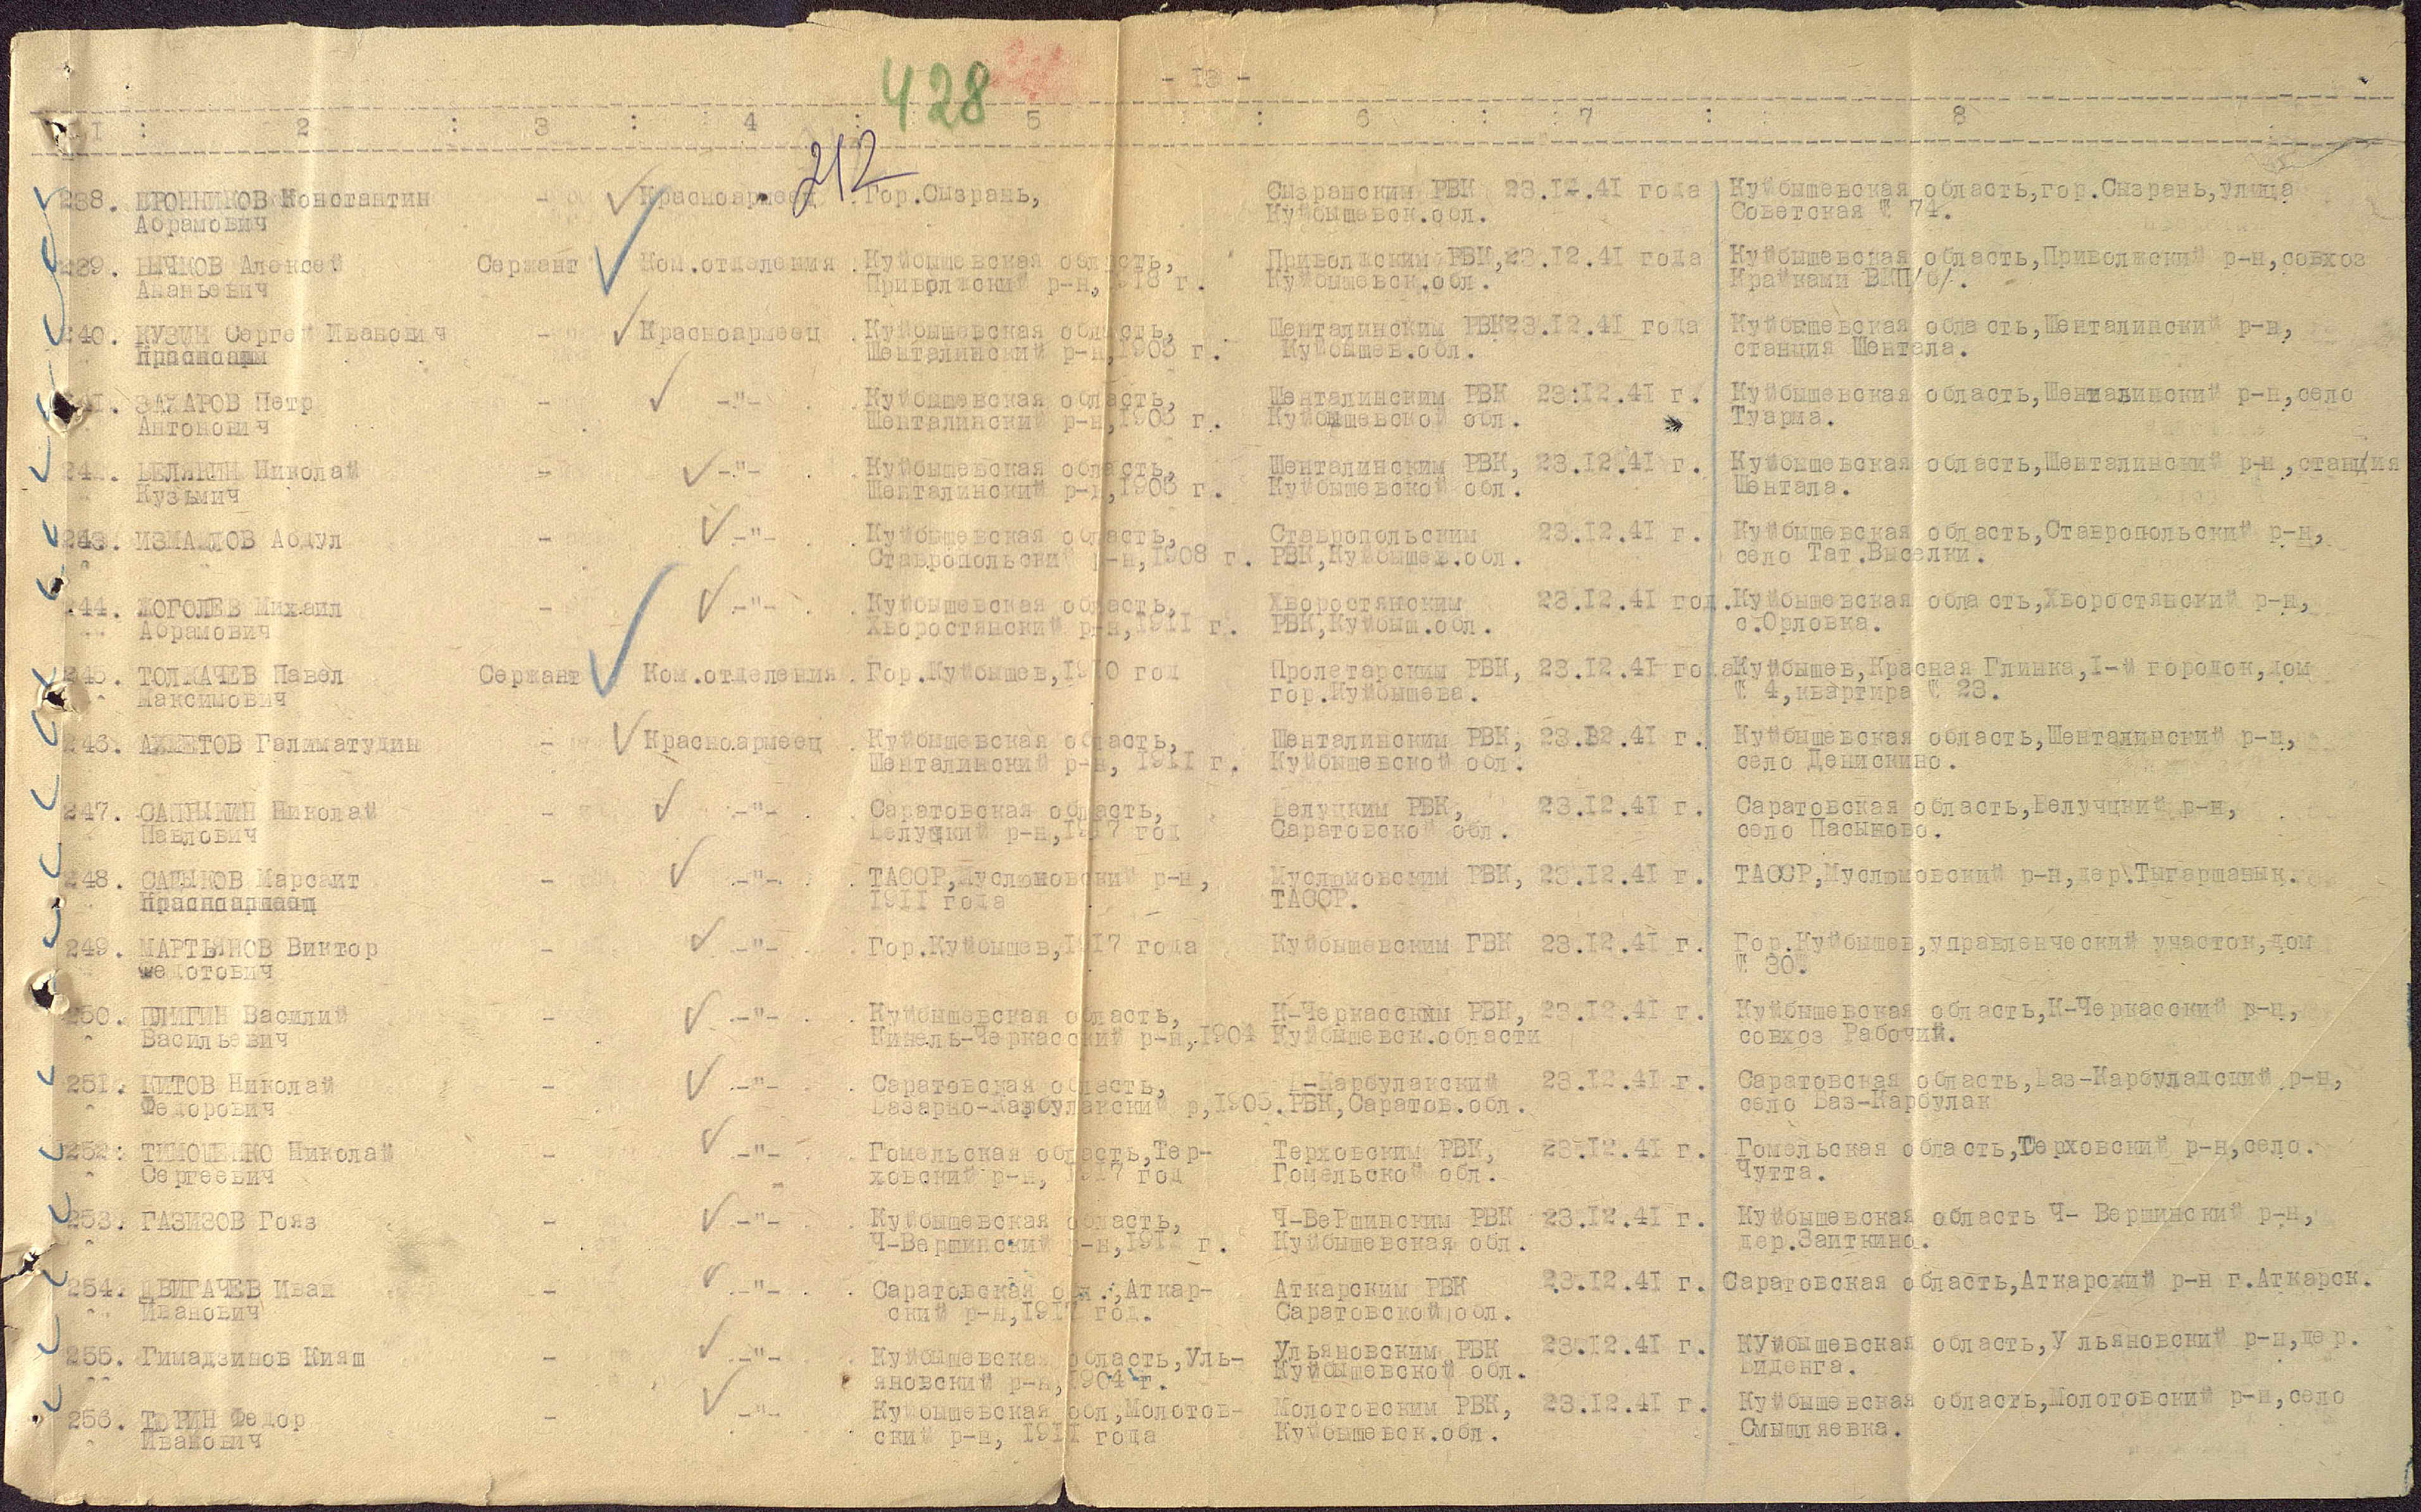 428
- 13 -
1 : 2 : 3 : 4 : 5 : 6 : 7 : 8
212
238. БРОННИКОВ Константин - Красноармеец Гор.Сызрань, Сызранским РВК 23.12.41 года Куйбышевская область,гор.Сызрань,улица
Абрамович Куйбышевск.обл. Советская № 74.
239. БЫЧКОВ Алексей Сержант Ком.отделения Куйбышевская область, Приволжским РВК,23.12.41 года Куйбышевская область,Приволжский р-н,совхоз
Ананьевич Приволжский р-н,1918 г. Куйбышевск.обл. Крайкома ВКП/б/.
240. КУЗИН Сергей Иванович - Красноармеец Куйбышевская область, Шенталинским РВК 23.12.41 года Куйбышевская область,Шенталинский р-н,
Шенталинский р-н,1903 г. Куйбышев.обл. станция Шентала.
241. ЗАХАРОВ Петр - -"- Куйбышевская область, Шенталинским РВК 23.12.41 г. Куйбышевская область,Шенталинский р-н,село
Антонович Шенталинский р-н,1903 г. Куйбышевской обл. Туарма.
242. БЕЛЯКИН Николай - -"- Куйбышевская область, Шенталинским РВК, 23.12.41 г. Куйбышевская область,Шенталинский р-н,станция
Кузьмич Шенталинский р-н,1903 г. Куйбышевской обл. Шентала.
243. ИЗМАЙЛОВ Абдул - -"- Куйбышевская область, Ставропольским 23.12.41 г. Куйбышевская область,Ставропольский р-н,
Ставропольский р-н,1908 г. РВК,Куйбышев.обл. село Тат.Выселки.
244. ЖОГОЛЕВ Михаил - -"- Куйбышевская область, Хворостянским 23.12.41 год. Куйбышевская область,Хворостянский р-н,
Абрамович Хворостянский р-н,1911 г. РВК,Куйбыш.обл. с.Орловка.
245. ТОЛКАЧЕВ Павел Сержант Ком.отделения Гор.Куйбышев,1910 год Пролетарским РВК, 23.12.41 года Куйбышев,Красная Глинка,1-й городок,дом
Максимович гор.Куйбышева. № 4,квартира № 23.
246. АХМЕТОВ Галиматудин - Красноармеец Куйбышевская область, Шенталинским РВК, 23.12.41 г. Куйбышевская область,Шенталинский р-н,
Шенталинский р-н, 1911 г. Куйбышевской обл. село Денискино.
247. САПРЫКИН Николай - -"- Саратовская область, РВК, 23.12.41 г. Саратовская область, р-н,
Павлович р-н,1917 год Саратовской обл. село Пасыково.
248. САДЫКОВ Марсаит - -"- ТАССР,Муслюмовский р-н, Муслюмовским РВК, 23.12.41 г. ТАССР,Муслюмовский р-н,дер.
1911 года ТАССР.
249. МАРТЬЯНОВ Виктор - -"- Гор.Куйбышев,1917 года Куйбышевским ГВК 23.12.41 г. Гор.Куйбышев,управленческий участок,дом
Федотович № 30.
250. ПЛИГИН Василий - -"- Куйбышевская область, К-Черкасским РВК, 23.12.41 г. Куйбышевская область,К-Черкасский р-н,
Васильевич Кинель-Черкасский р-н,1904 Куйбышевск.области совхоз Рабочий.
251. КИТОВ Николай - -"- Саратовская область, Б-Карбулакский 23.12.41 г. Саратовская область,Баз-Карбулакский р-н,
Федорович Базарно-Карбулакский р,1903. РВК,Саратов.обл. село Баз-Карбулак
252. ТИМОШЕНКО Николай - -"- Гомельская область,Тер- Терховским РВК, 23.12.41 г. Гомельская область,Терховский р-н,село.
Сергеевич ховский р-н, 1917 год Гомельской обл. Чутта.
253. ГАЗИЗОВ Гояз - -"- Куйбышевская область, Ч-ВеРшинским РВК 23.12.41 г. Куйбышевская область Ч- Вершинский р-н,
Ч-Вершинский р-н, г. Куйбышевская обл. дер.Заиткино.
254. ДВИГАЧЕВ Иван - -"- Саратовская обл.,Аткар- Аткарским РВК 23.12.41 г. Саратовская область,Аткарский р-н г.Аткарск.
Иванович ский р-н,1917 год. Саратовской обл.
255. Гимадзинов Кияш - -"- Куйбышевская область,Уль- Ульяновским РВК 23.12.41 г. КУйбышевская область,Ульяновский р-н,дер.
яновский р-н,1904 г. Куйбышевской обл. Биденга.
256. ТЮРИН Федор - -"- Куйбышевская обл,Молотов- Молотовским РВК, 23.12.41 г. Куйбышевская область,Молотовский р-н,село
Иванович ский р-н, 1911 года Куйбышевск.обл. Смышляевка.